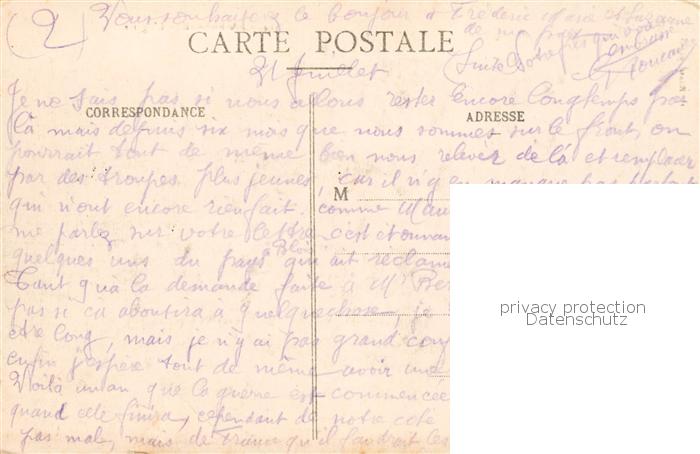 (2) Vous souhaiterez le bonjour à Frédéric Marie et
de ma part
CARTE POSTALE
qui vous
embrasse
31 Juillet
Je ne sais pas si nous allons rester encore longtemps par
CORRESPONDANCE
ADRESSE
là mais depuis six mois que nous sommes sur le front, on
pourrait tout de même bien nous relever de là et remplacer
par des troupes plus jeunes, car il n'y en manque pas partout
M
qui n'ont encore rien fait. comme
me parlez sur votre lettre c'est
quelques uns du pays qui ait réclamé
Blois
Tant qu'à la demande faite à Mr
pas si ca aboutira à quelque chose, je
etre long, mais je n'y ai pas grand
enfin j'espère tout de même avoir une
Voilà un an que la guerre est commencée
quand elle finira, cependant de notre coté
pas mal, mais de qu'il faudrait les
privacy protection
Datenschutz